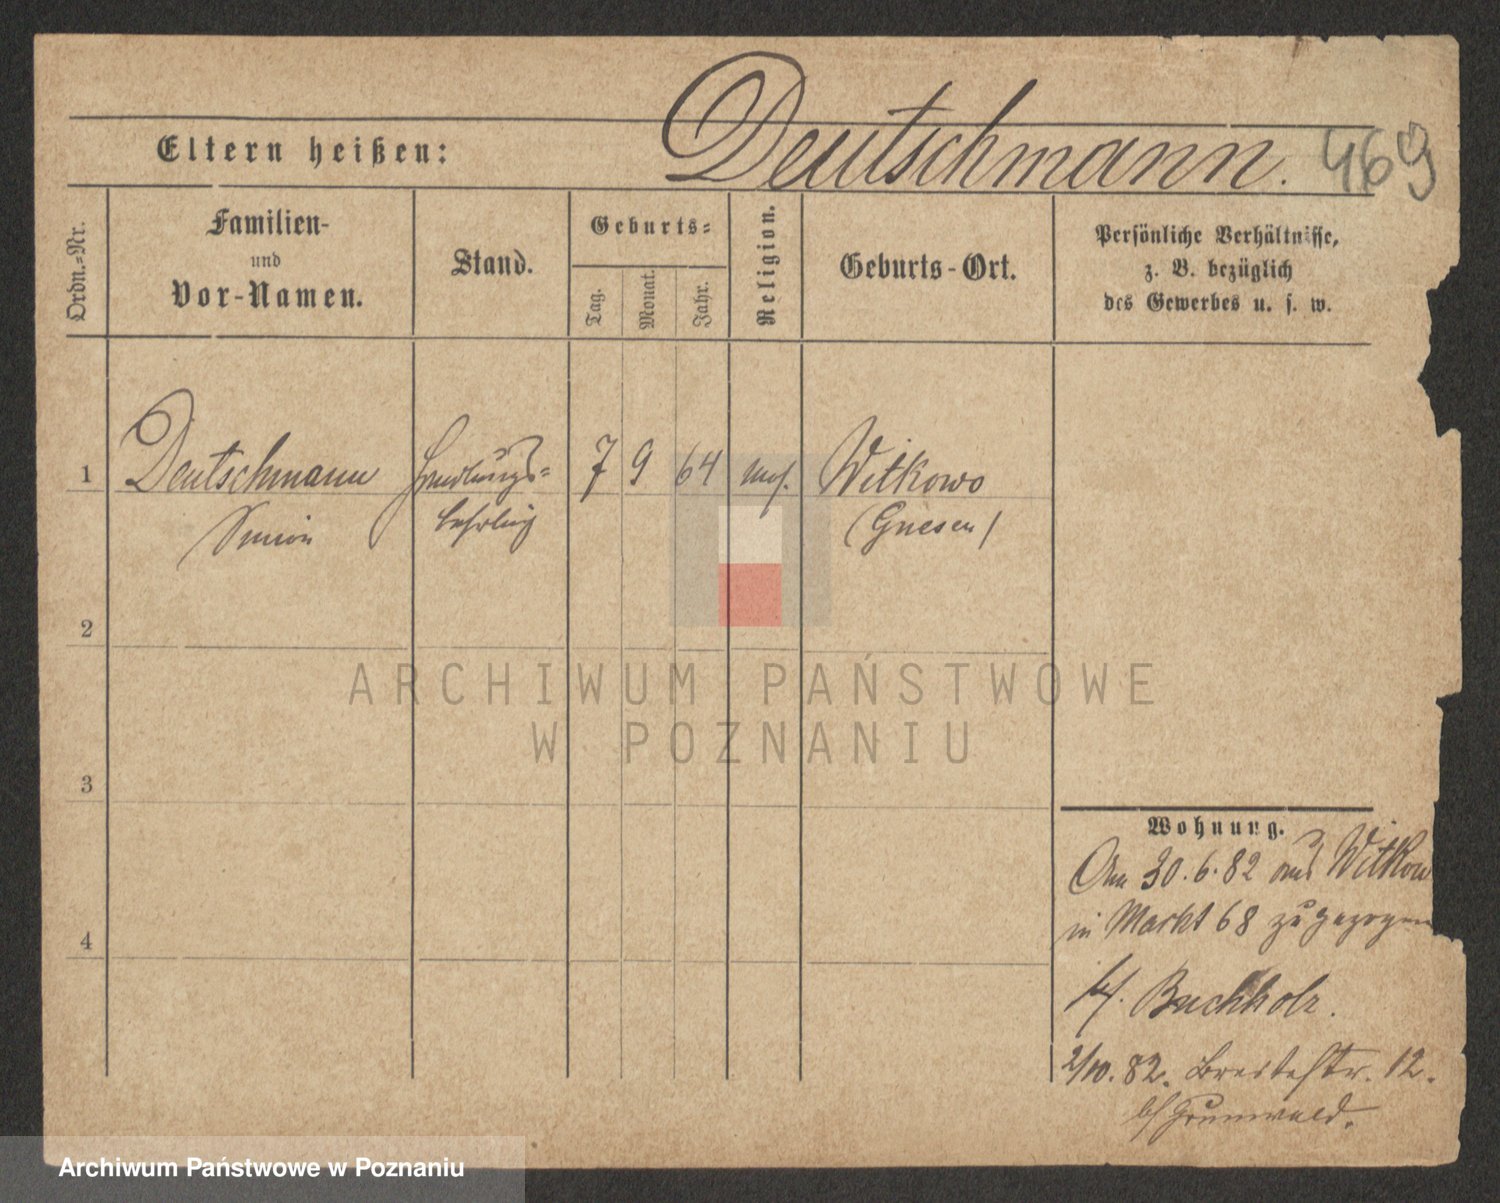 Deutschmann. 469
Eltern heißen:
Ordn.=Nr.
Familien-
und
Vor-Namen.
Stand.
Geburts=
Tag.
Monat.
Jahr.
Religion.
Geburts-Ort.
Persönliche Verhältnisse,
z. B. bezüglich
des Gewerbes u. s. w.
1 Deutschmann Handlungs= 7 9 64 mos. Witkowo
Simon Lehrling (Gnesen)
2
3
4
ARCHIWUM PAŃSTWOWE
W POZNANIU
Wohnung.
Am 30.6.82 aus Witkow
in Markt 68 zugezogen
bf. Buchholz.
2/10.82. Breitestr. 12.
bf Grunwald.
Archiwum Państwowe w Poznaniu